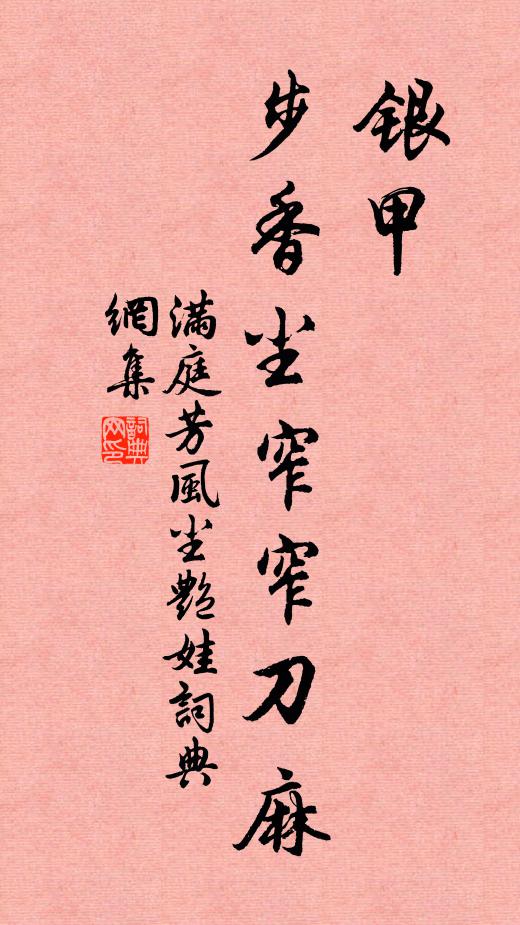 银甲
步香尘窄窄刀麻
滿庭芳風尘艷娃詞典
網集
詞典
网印